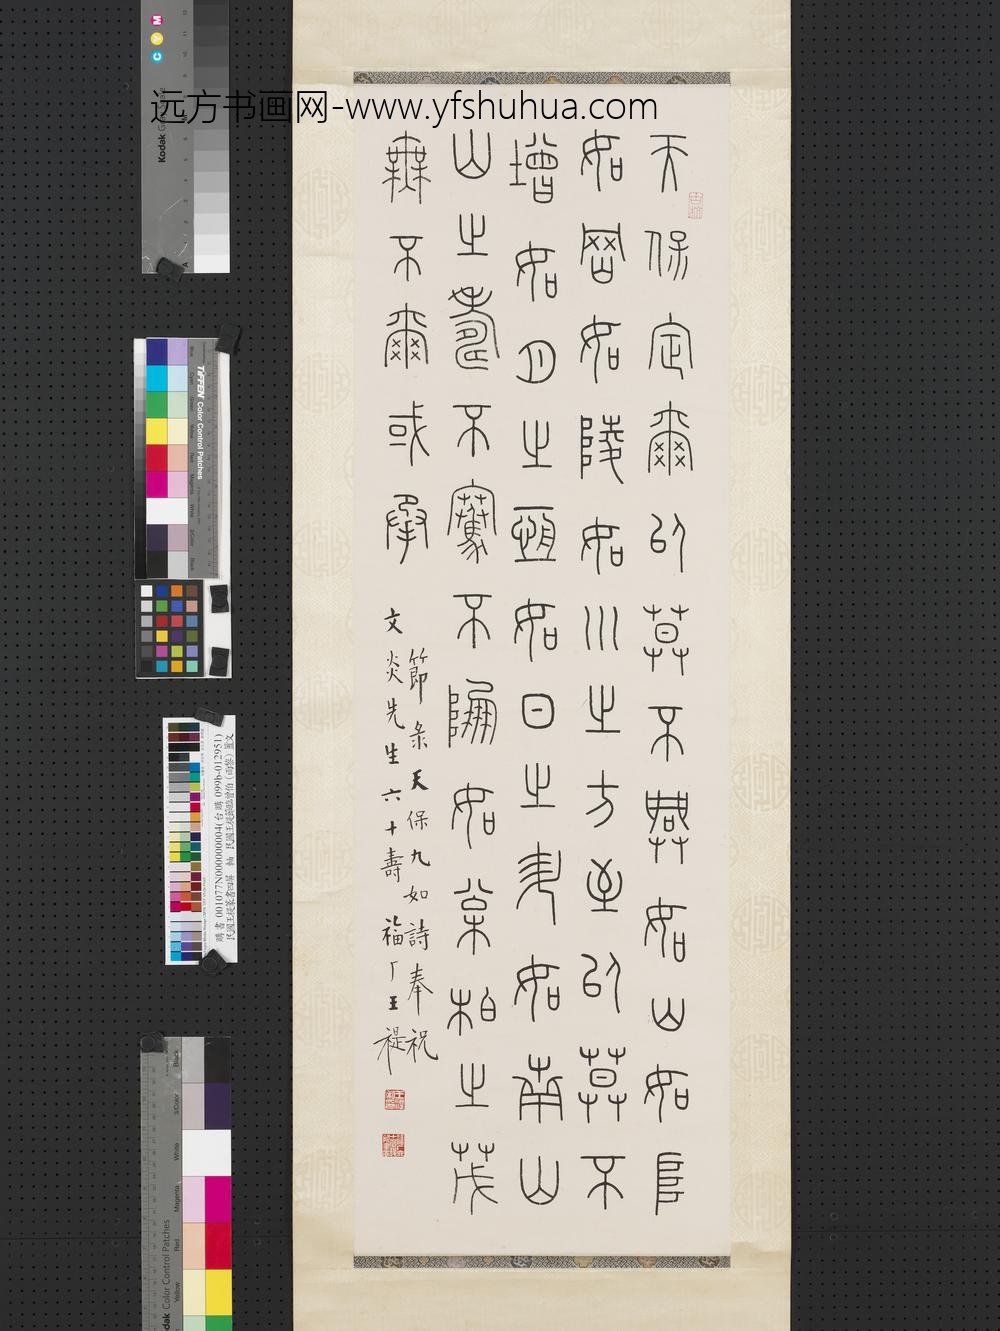 远方书画网-www.yfshuhua.com
天保定爾以莫不興如山如阜
如岡如陵如川之方至以莫不
增如月之恆如日之升如南山
山之壽不騫不崩如松柏之茂
無不爾或承
節录天保九如詩奉祝
文炎先生六十壽 福厂王禔
C Y M
Kodak
TIFFEN Color Control Patches
購書 001077N000000004(台購 099b-012951)
民國王禔篆書四屏 軸 民國王禔節臨曾伯(雨黎)簠文
Black
3/Color
White
Magenta
Red
Yellow
Kodak Color Control Patches